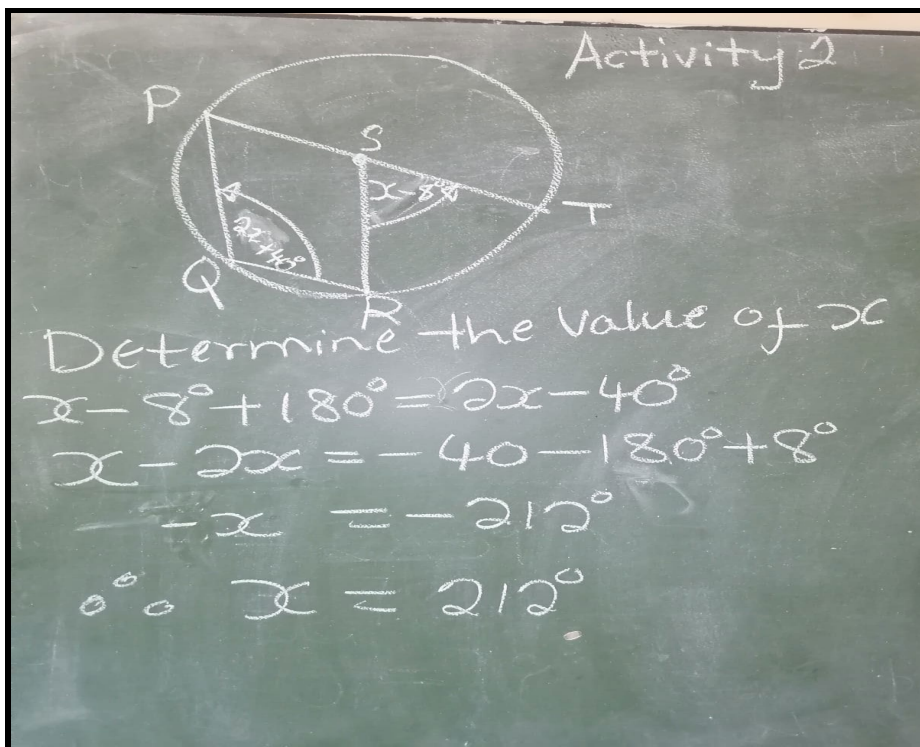 Activity 2
P
S
x-8°
T
Q
R
Determine the value of x
x-8°+180°=2x-40°
x-2x=-40-180°+8°
-x=-212°
∴ x=212°